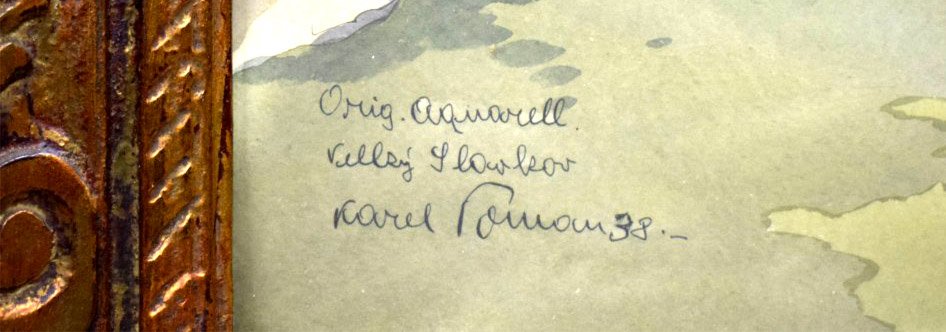 Orig. Aquarell.
Velký Slavkov
Karel Toman 38.-